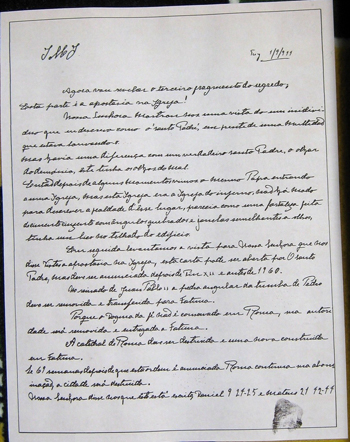 J.M.J. Tuy 1/9/944
Agora vou revelar o terceiro fragmento do segredo;
Esta parte é a apostasia na Igreja!
Nossa Senhora mostrou-nos uma vista do um individuo
que eu descrevo como o 'santo Padre', em frente de uma multidão
que estava louvando-o.
Mas havia uma diferença com um verdadeiro santo Padre, o olhar
do demonio, este tinha os olhos do mal.
Então depois de alguns momentos vimos o mesmo Papa entrando
a uma Igreja, mas esta Igreja era a Igreja do inferno, não há modo
para descrever a fealdade d'esse lugar, parecia como uma fortaleza feita
de cimento cinzento com ângulos quebrados e janelas semelhantes a olhos,
tinha um bico no telhado do edificio.
Em seguida levantamos a vista para Nossa Senhora que nos
disse Vistes a apostasia na Igreja, esta carta pode ser aberta por O santo
Padre, mas deve ser anunciada depois de Pio XII e antes de 1960.
No reinado de Juan Pablo II a pedra angular da tumba de Pedro
deve ser removida e transferida para Fatima.
Porque o dogma da fé não é conservado em Roma, sua autoridade
será removida e entregada a Fatima.
A catedral de Roma deve ser destruida e uma nova construida
em Fatima.
Se 69 semanas depois de que esta ordem é anunciada Roma continua sua abominação,
a cidade será destruida.
Nossa Senhora disse-nos que este está escrito, Daniel 9 24-25 e Mateus 21 42-44